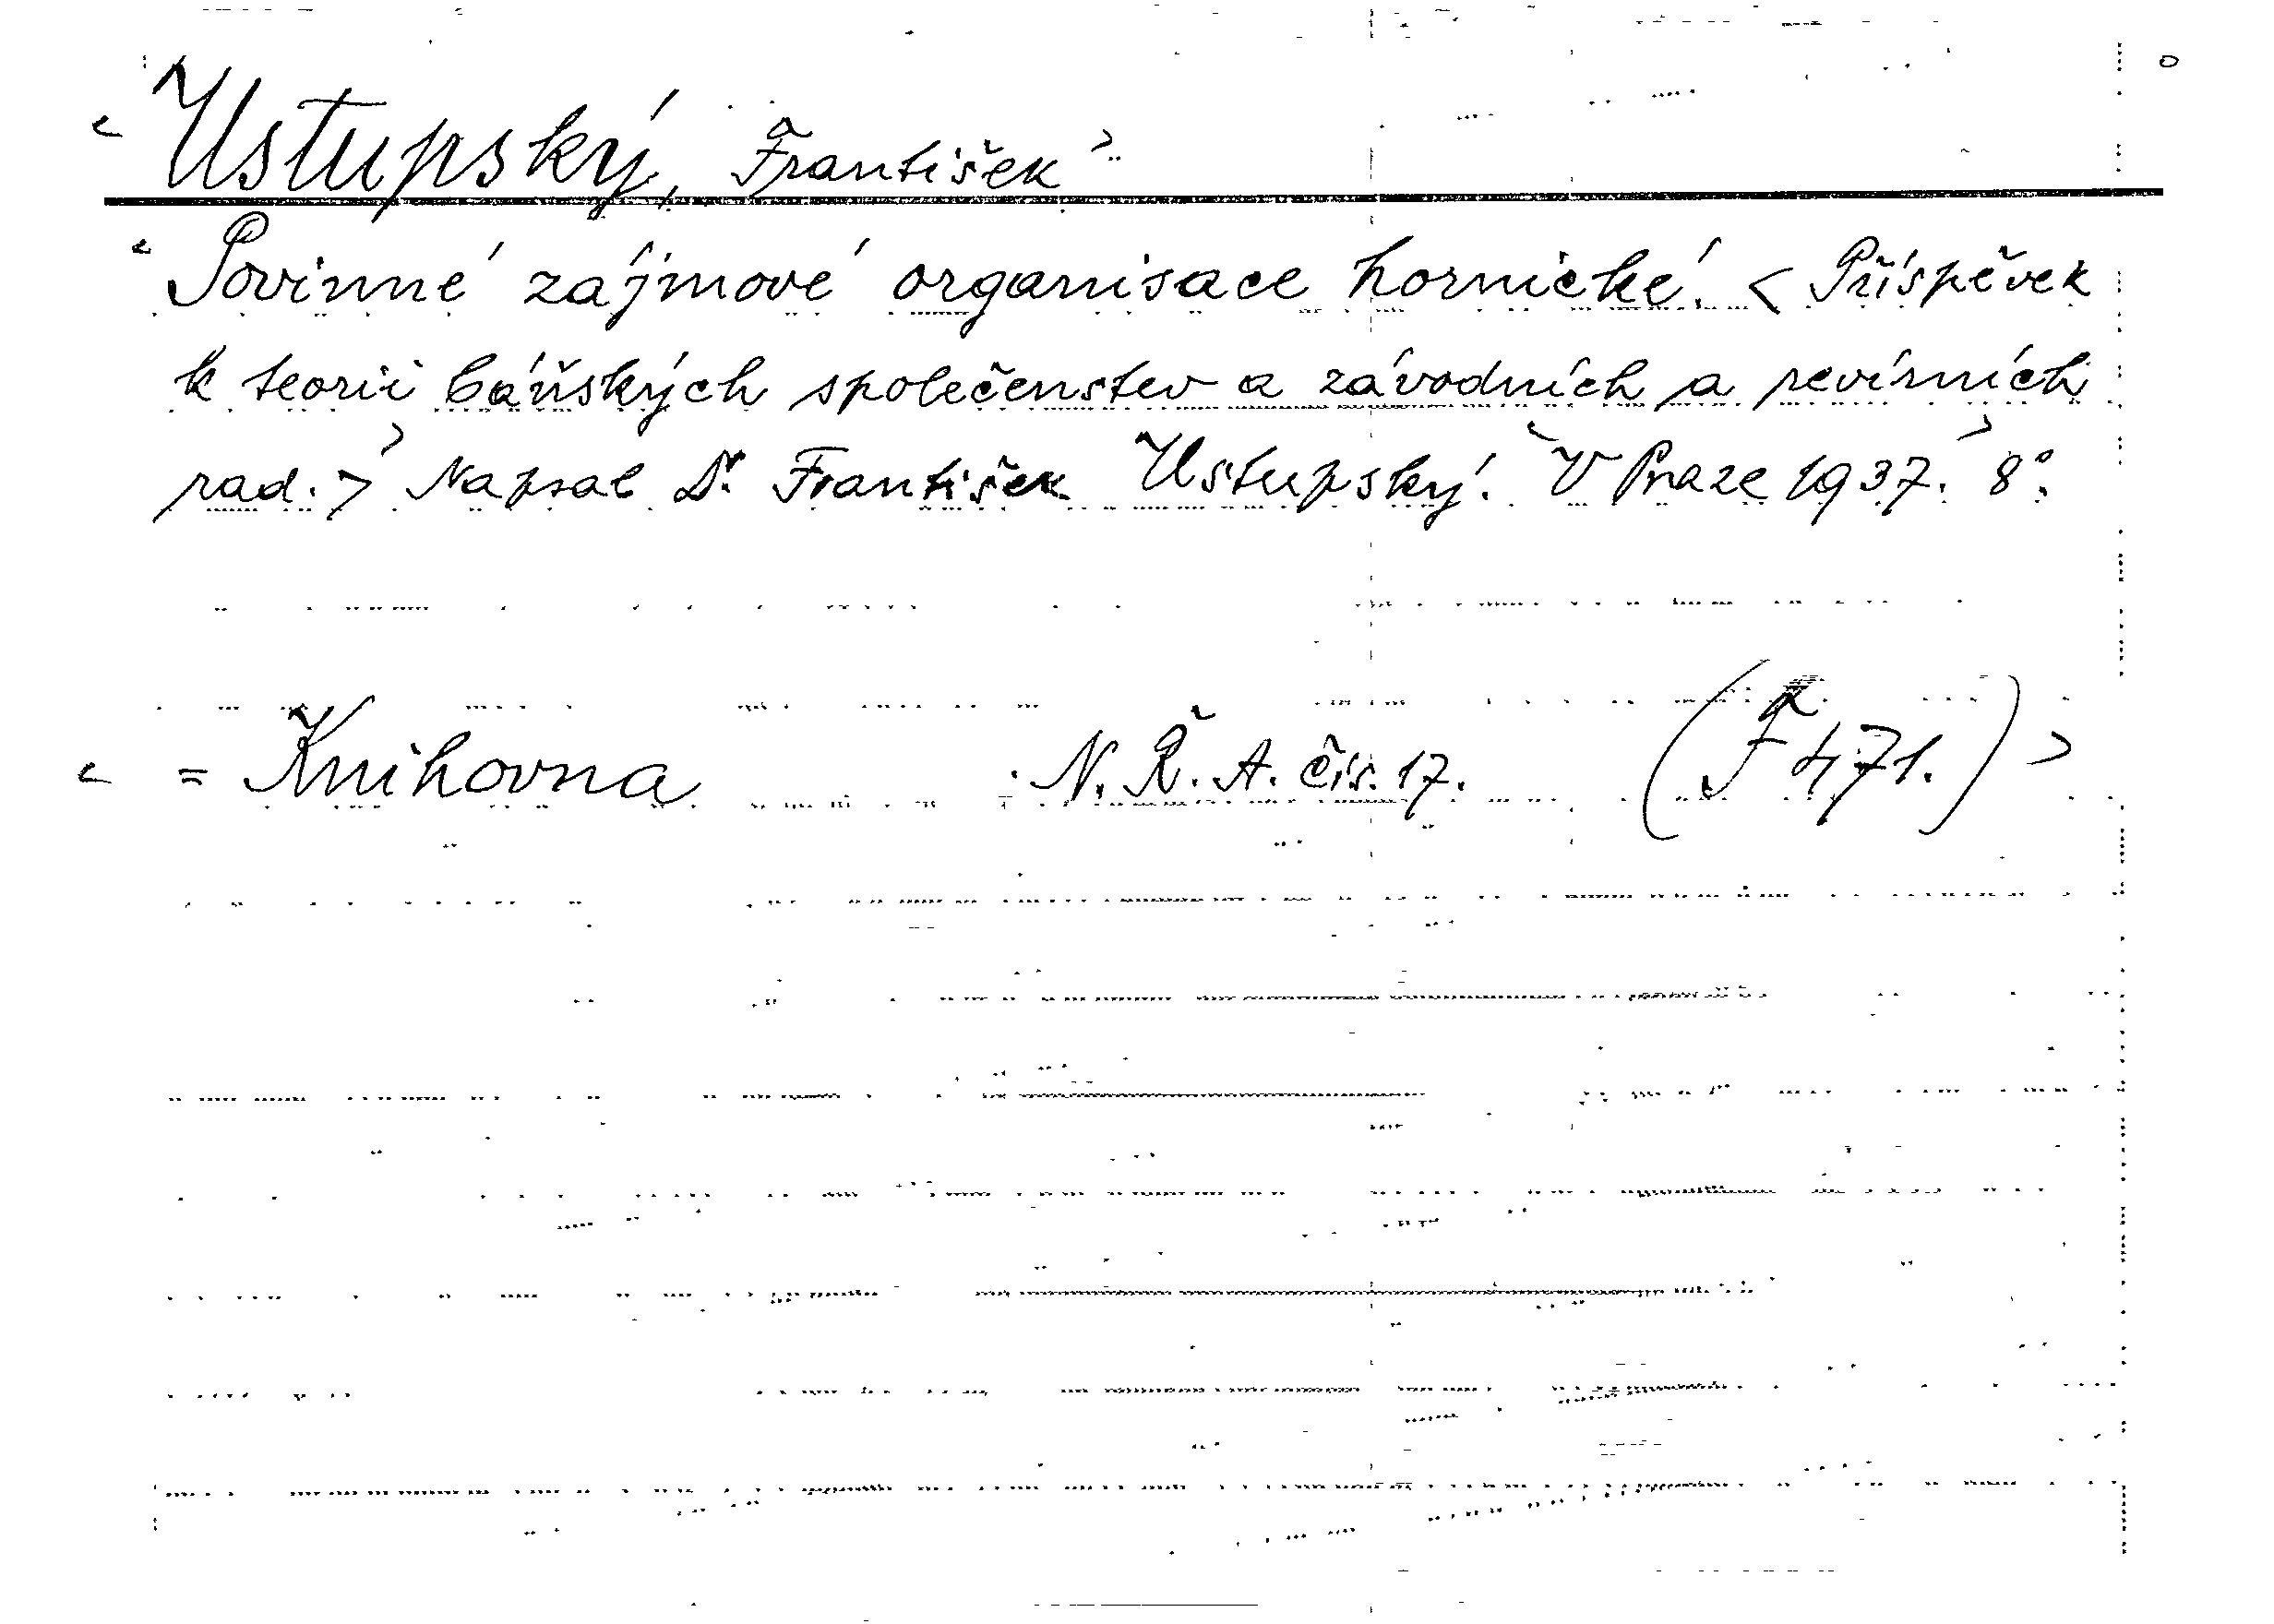 ‹ Ustupský, František ›
‹ Povinné zájmové organisace hornické. < Příspěvek
k teorii báňských společenstev a závodních a revírních
rad. > › Napsal Dr. František Ustupský. ‹ V Praze 1937. › 8°.
‹ = Knihovna N. Ř. A. čís. 17. (F 471.) ›